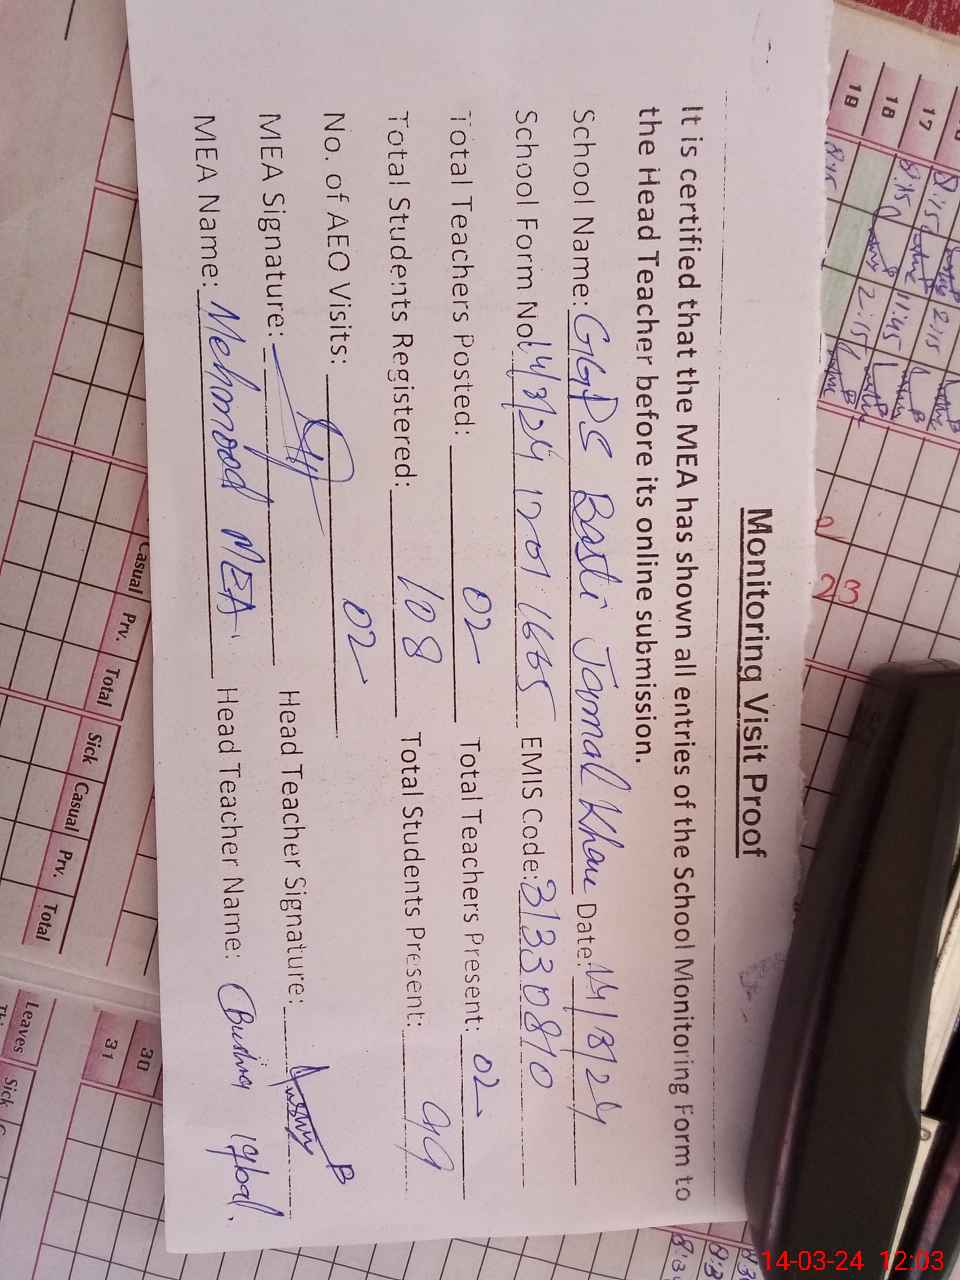 Monitoring Visit Proof
It is certified that the MEA has shown all entries of the School Monitoring Form to
the Head Teacher before its online submission.
School Name: GGPS Basti Jamal Khan Date: 14/3/24
School Form No. 14/3/24 1201 1665 EMIS Code: 31330810
Total Teachers Posted: 02 Total Teachers Present: 02
Total Students Registered: 108 Total Students Present: 99
No. of AEO Visits: 02
MEA Signature: Head Teacher Signature:
MEA Name: Mehmood MEA Head Teacher Name: Bushra Iqbal.
17
18
19
8:15 2:15
8:15 11:45
8:15 2:15
23
Casual Prv. Total
Sick Casual Prv. Total
30
31
Leaves
Sick
14-03-24 12:03